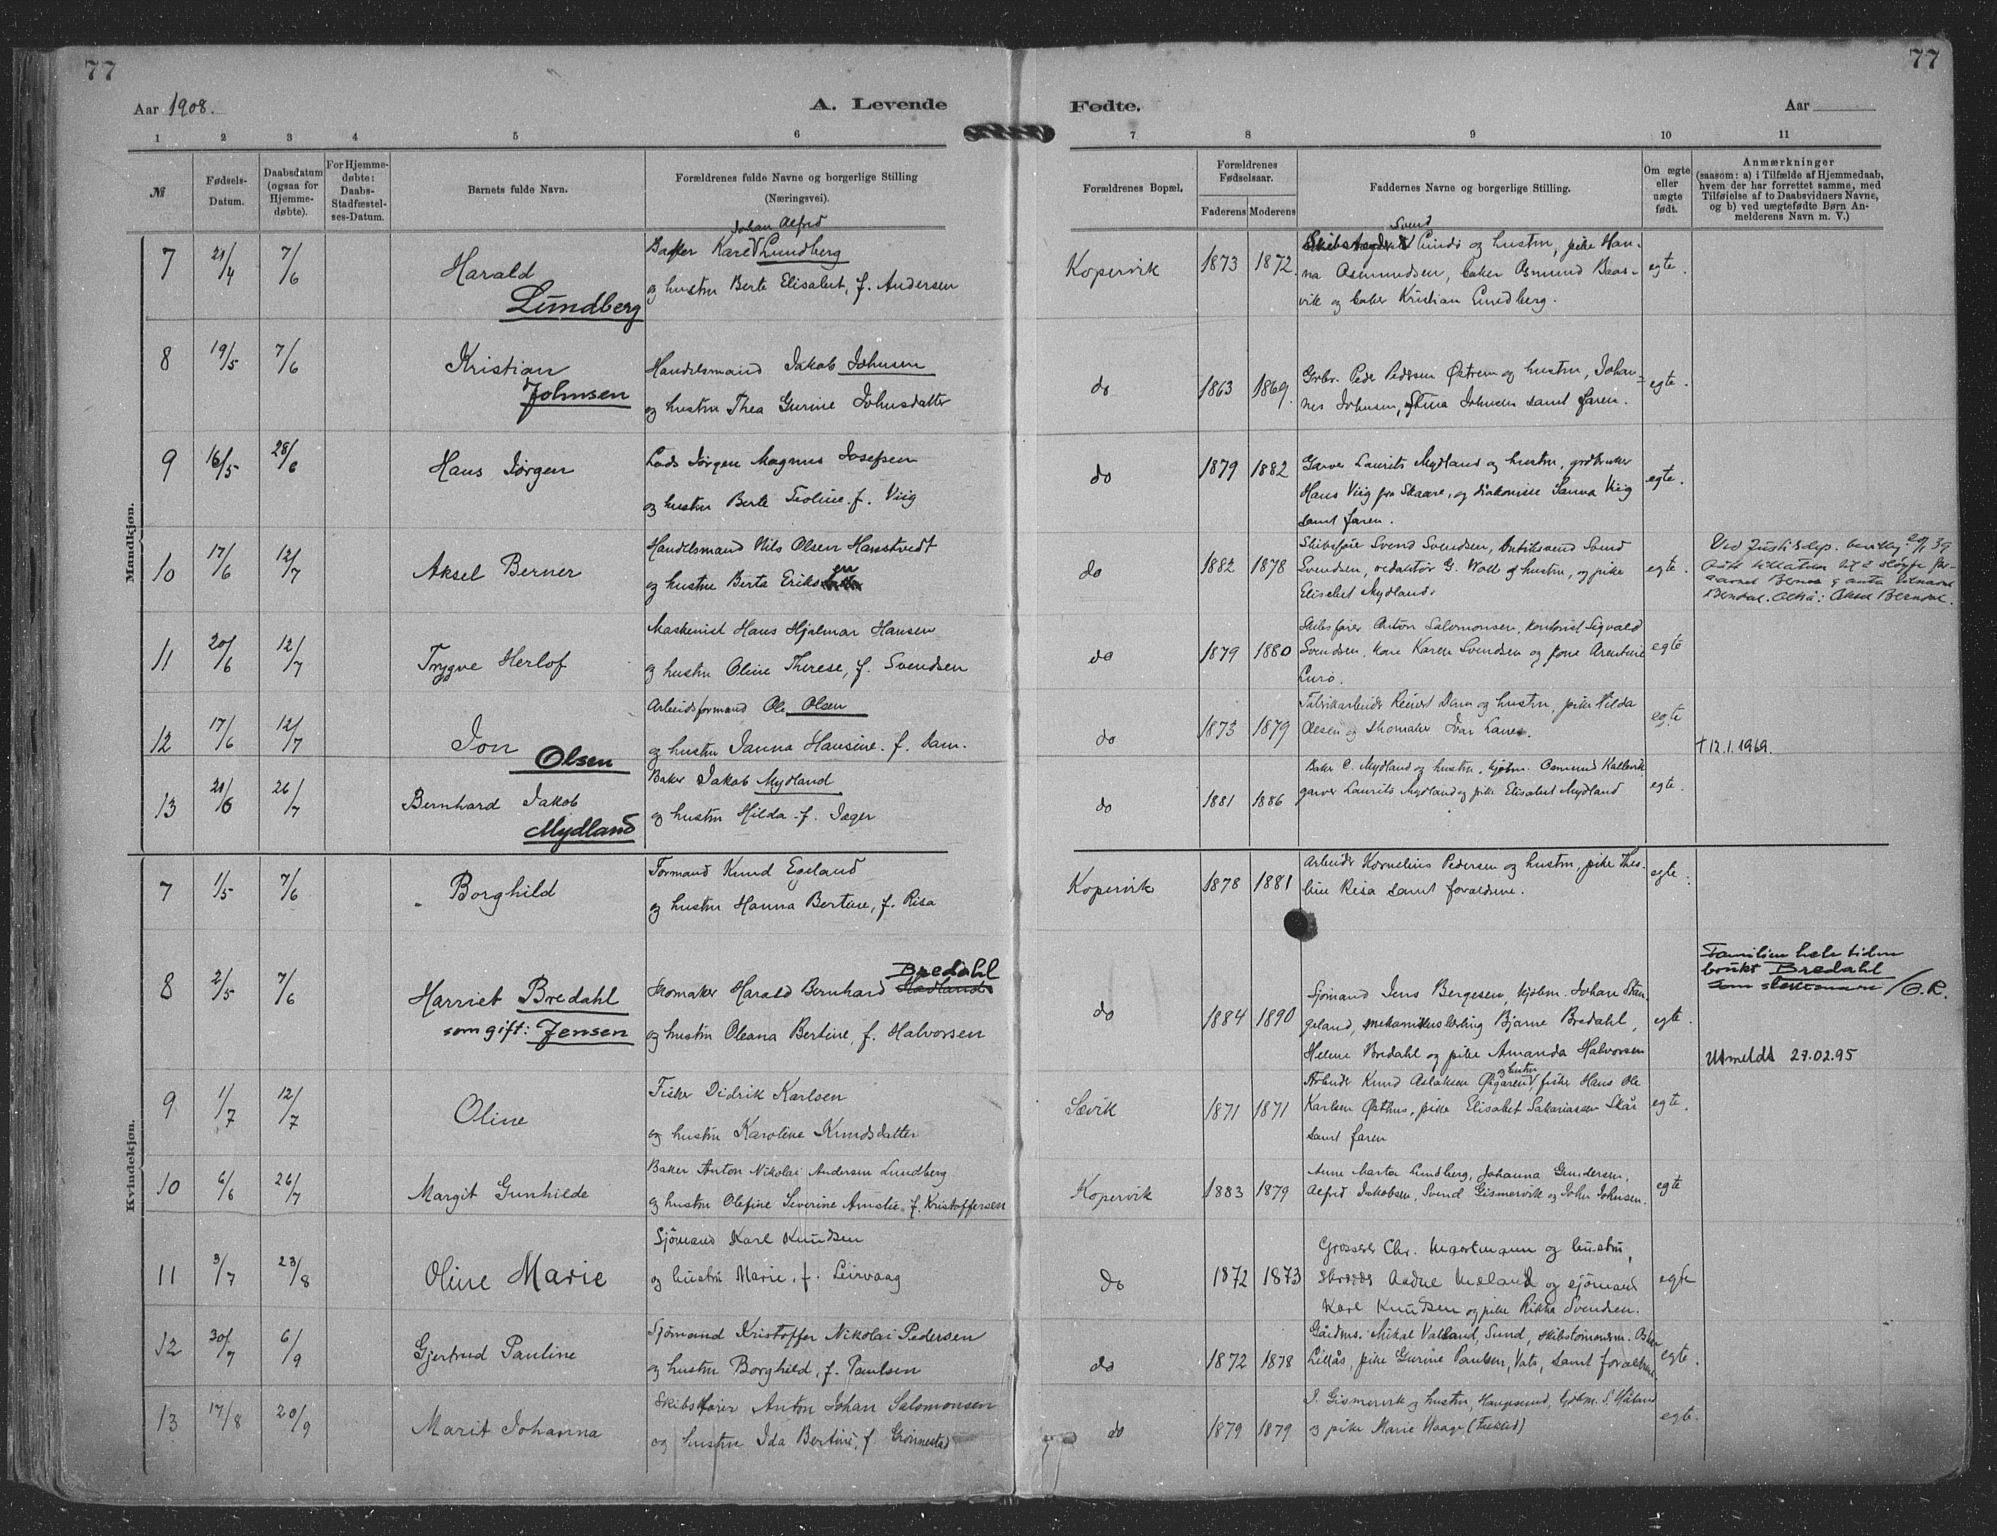 77
77
Aar 1908.
A. Levende
Fødte.
Aar
1 2 3 4 5 6 7 8 9 10 11
№
Fødsels-
Datum.
Daabsdatum
(ogsaa for
Hjemme-
døbte).
For Hjemme-
døbte:
Daabs-
Stadfæstel-
ses-Datum.
Barnets fulde Navn.
Forældrenes fulde Navne og borgerlige Stilling
(Næringsvei).
Forældrenes Bopæl.
Forældrenes
Fødselsaar.
Faderens Moderens
Faddernes Navne og borgerlige Stilling.
Om ægte
eller
uægte
født.
Anmærkninger
(saasom: a) i Tilfælde af Hjemmedaab,
hvem der har forrettet samme, med
Tilføielse af to Daabsvidners Navne,
og b) ved uægtefødte Børn An-
melderens Navn m. V.)
Mandkjøn.
7 21/4 7/6
Harald
Lundberg
Johan Alfred
Baker Karl V Lundberg
og hustru Berte Elisabet, f. Andersen
Kopervik 1873 1872.
Svend
Lindø og hustru, pike Han-
na Asmundsen, baker Osmund Baas-
vik og baker Kristian Lundberg.
egte.
8 19/5 7/6
Kristian
Johnsen
Handelsmand Jakob Johnsen
og hustru Thea Gurine Johnsdatter
do 1863 1869.
Grbr. Peder Pedersen Østrem og hustru, Johan-
nes Johnsen, Stina Johnsen samt faren.
egte.
9 16/5 28/6
Hans Jørgen
Lods Jørgen Magnus Josefsen
og hustru Berte Teoline f. Viig
do 1879 1882
Garver Laurits Mydland og hustru,
Hans Viig fra Skaare, og diakonisse Sanna Viig
samt faren.
egte.
10 17/6 12/7
Aksel Berner
Handelsmand Nils Olsen Hanstvedt
og hustru Berta Eriksen
do 1882 1878
Skibsfører Svend Svendsen, Svend
Svendsen, redaktør G. Wold og hustru, og pike
Elisabet Mydland.
egte.
Ved Justisdep. bevilling
Berndal. Altså: Aksel Berndal.
11 20/6 12/7
Trygve Herlof
Maskinist Hans Hjalmar Hansen
og hustru Oline Therese, f. Svendsen
do 1879 1880
Skibsfører Anton Salomonsen, kontorist Sigvald
Svendsen, kone Karen Svendsen og kone
Lurø.
egte
12 17/6 12/7
Jon
Olsen
Arbeidsformand Ole Olsen
og hustru Janna Hansine f. Dam.
do 1873 1879
Fabrikarbeider Reinert Dam og hustru, pike Hilda
Olsen og skomaker Ivar Lanes.
egte
† 12.1.1969.
13 21/6 26/7
Bernhard Jakob
Mydland
Baker Jakob Mydland
og hustru Hilda f. Jæger
do 1881 1886
Baker C. Mydland og hustru, kjøbm. Osmund Kallevik
garver Laurits Mydland og pike Elisabet Mydland
egte.
Kvindekjøn.
7 1/5 7/6
Borghild
Formand Knud Egeland
og hustru Hanna Bertine, f. Risa
Kopervik 1878 1881
Arbeider Kornelius Pedersen og hustru, pike Thea-
line Risa samt forældrene.
egte.
8 2/5 7/6
Harriet Bredahl
som gift: Jensen
Bredahl
Skomaker Harald Bernhard
og hustru Oleana Bertine, f. Halvorsen
do 1884 1890
Sjømand Jens Bergesen, kjøbm. Johan Stan-
geland, mekanikerlærling Bjarne Bredahl,
Helene Bredahl og pike Amanda Halvorsen
egte.
Familien hele tiden
brukt Bredahl
som slektsnavn /O.R.
Utmeldt 27.02.95
9 1/7 12/7
Oline
Fisker Didrik Karlsen
og hustru Karoline Knudsdatter
Sævik 1871 1871
og hustru
Arbeider Knud Aslaksen Øigaren V, fisker Hans Ole
Karlsen Østhus, pike Elisabet Sakariassen Skår
samt faren
egte.
10 6/6 26/7
Margit Gunhilde
Baker Anton Nikolai Andersen Lundberg
og hustru Olefine Severine Amalie, f. Kristoffersen
Kopervik 1883 1879
Anne Marta Lundberg, Johanna Gundersen,
Alfred Jakobsen, Svend Gismervik og John Johnsen.
egte
11 3/7 23/8
Oline Marie
Sjømand Karl Knudsen
og hustru Marie, f. Leirvaag
do 1872 1873
Grosserer Chr. Maartmann og hustru,
skrædder Aadne Mæland og sjømand
Karl Knudsen og pike Rikka Svendsen.
egte
12 30/7 6/9
Gjertrud Pauline
Sjømand Kristoffer Nikolai Pedersen
og hustru Borghild, f. Paulsen
do 1872 1878
Gårdm. Mikal Valland, Sund, skibstømmerm.
Lillås, pike Gurine Paulsen, Vats, samt forældrene
egte.
13 17/8 20/9
Marit Johanna
Skibsfører Anton Johan Salomonsen
og hustru Ida Bertine, f. Grønnestad
do 1879 1879
J. Gismervik og hustru, Haugesund, kjøbm. S. Håland
og pike Marie Waage
egte.